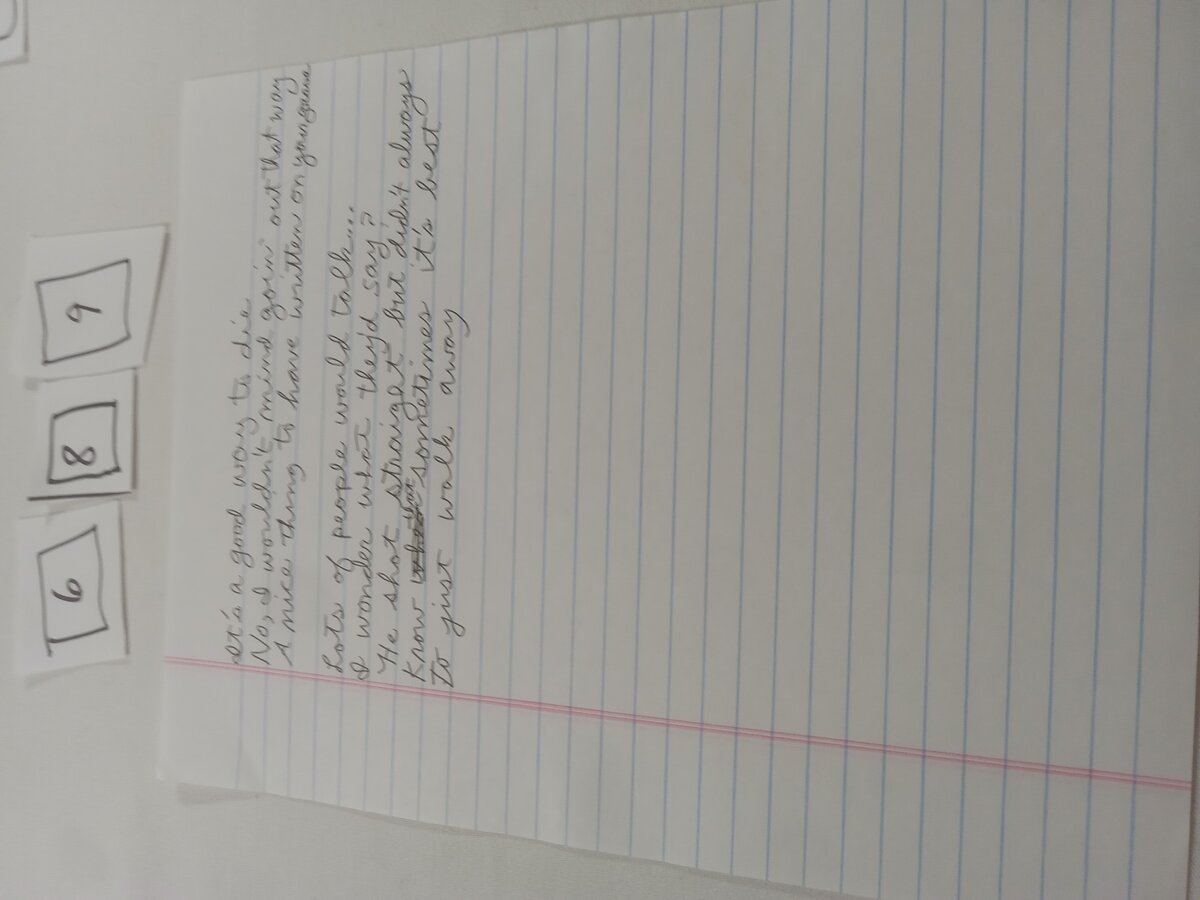 6 8 9
It's a good way to die
No, I wouldn't mind goin' out that way
A nice thing to have written on your grave
Lots of people would talk...
I wonder what they'd say?
He shot straight but didn't always
know that sometimes it's best
to just walk away